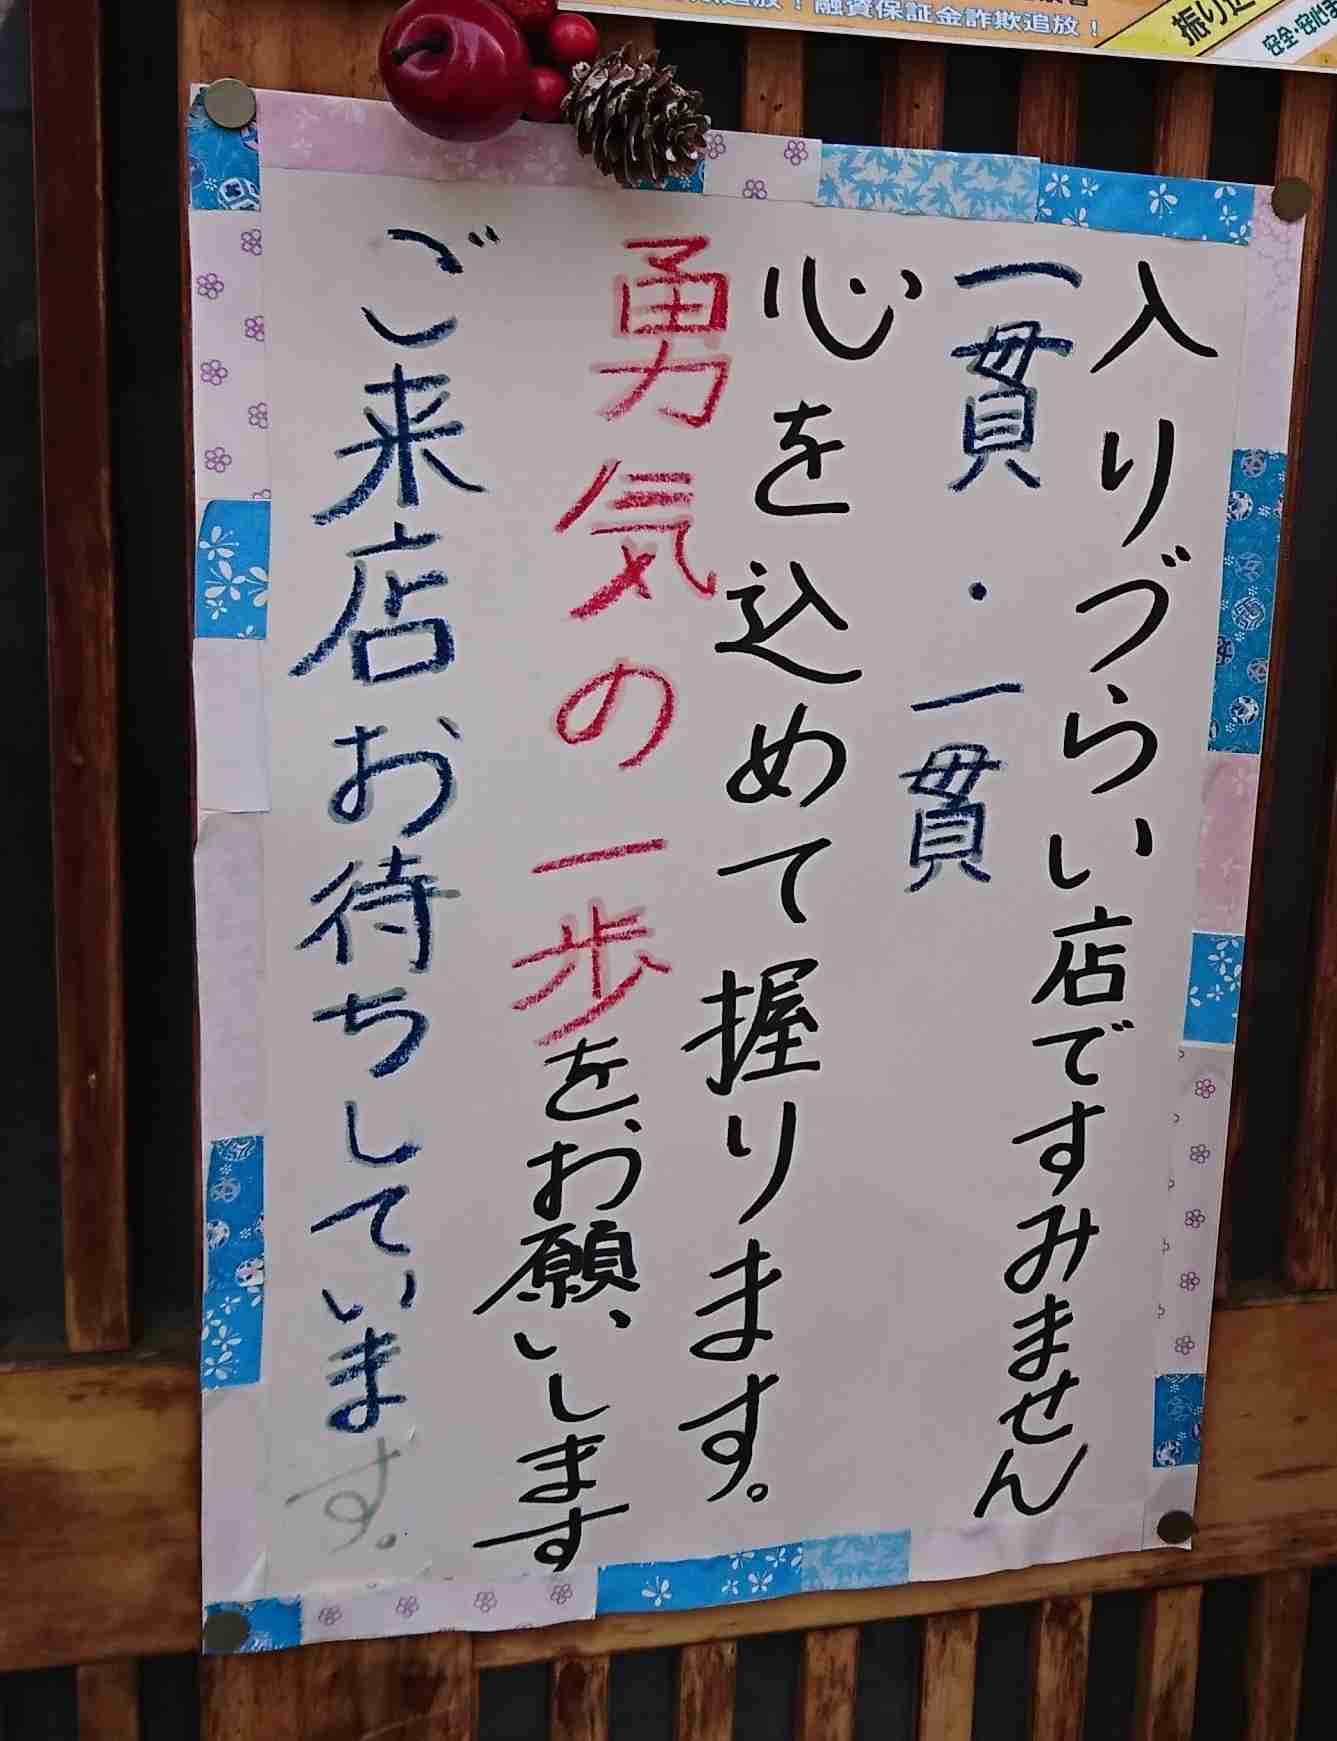 追放！融資保証金詐欺追放！
振り込
安全・安心ま
入りづらい店ですみません
一貫・一貫
心を込めて握ります。
勇気の一歩を、お願いします
ご来店お待ちしています。